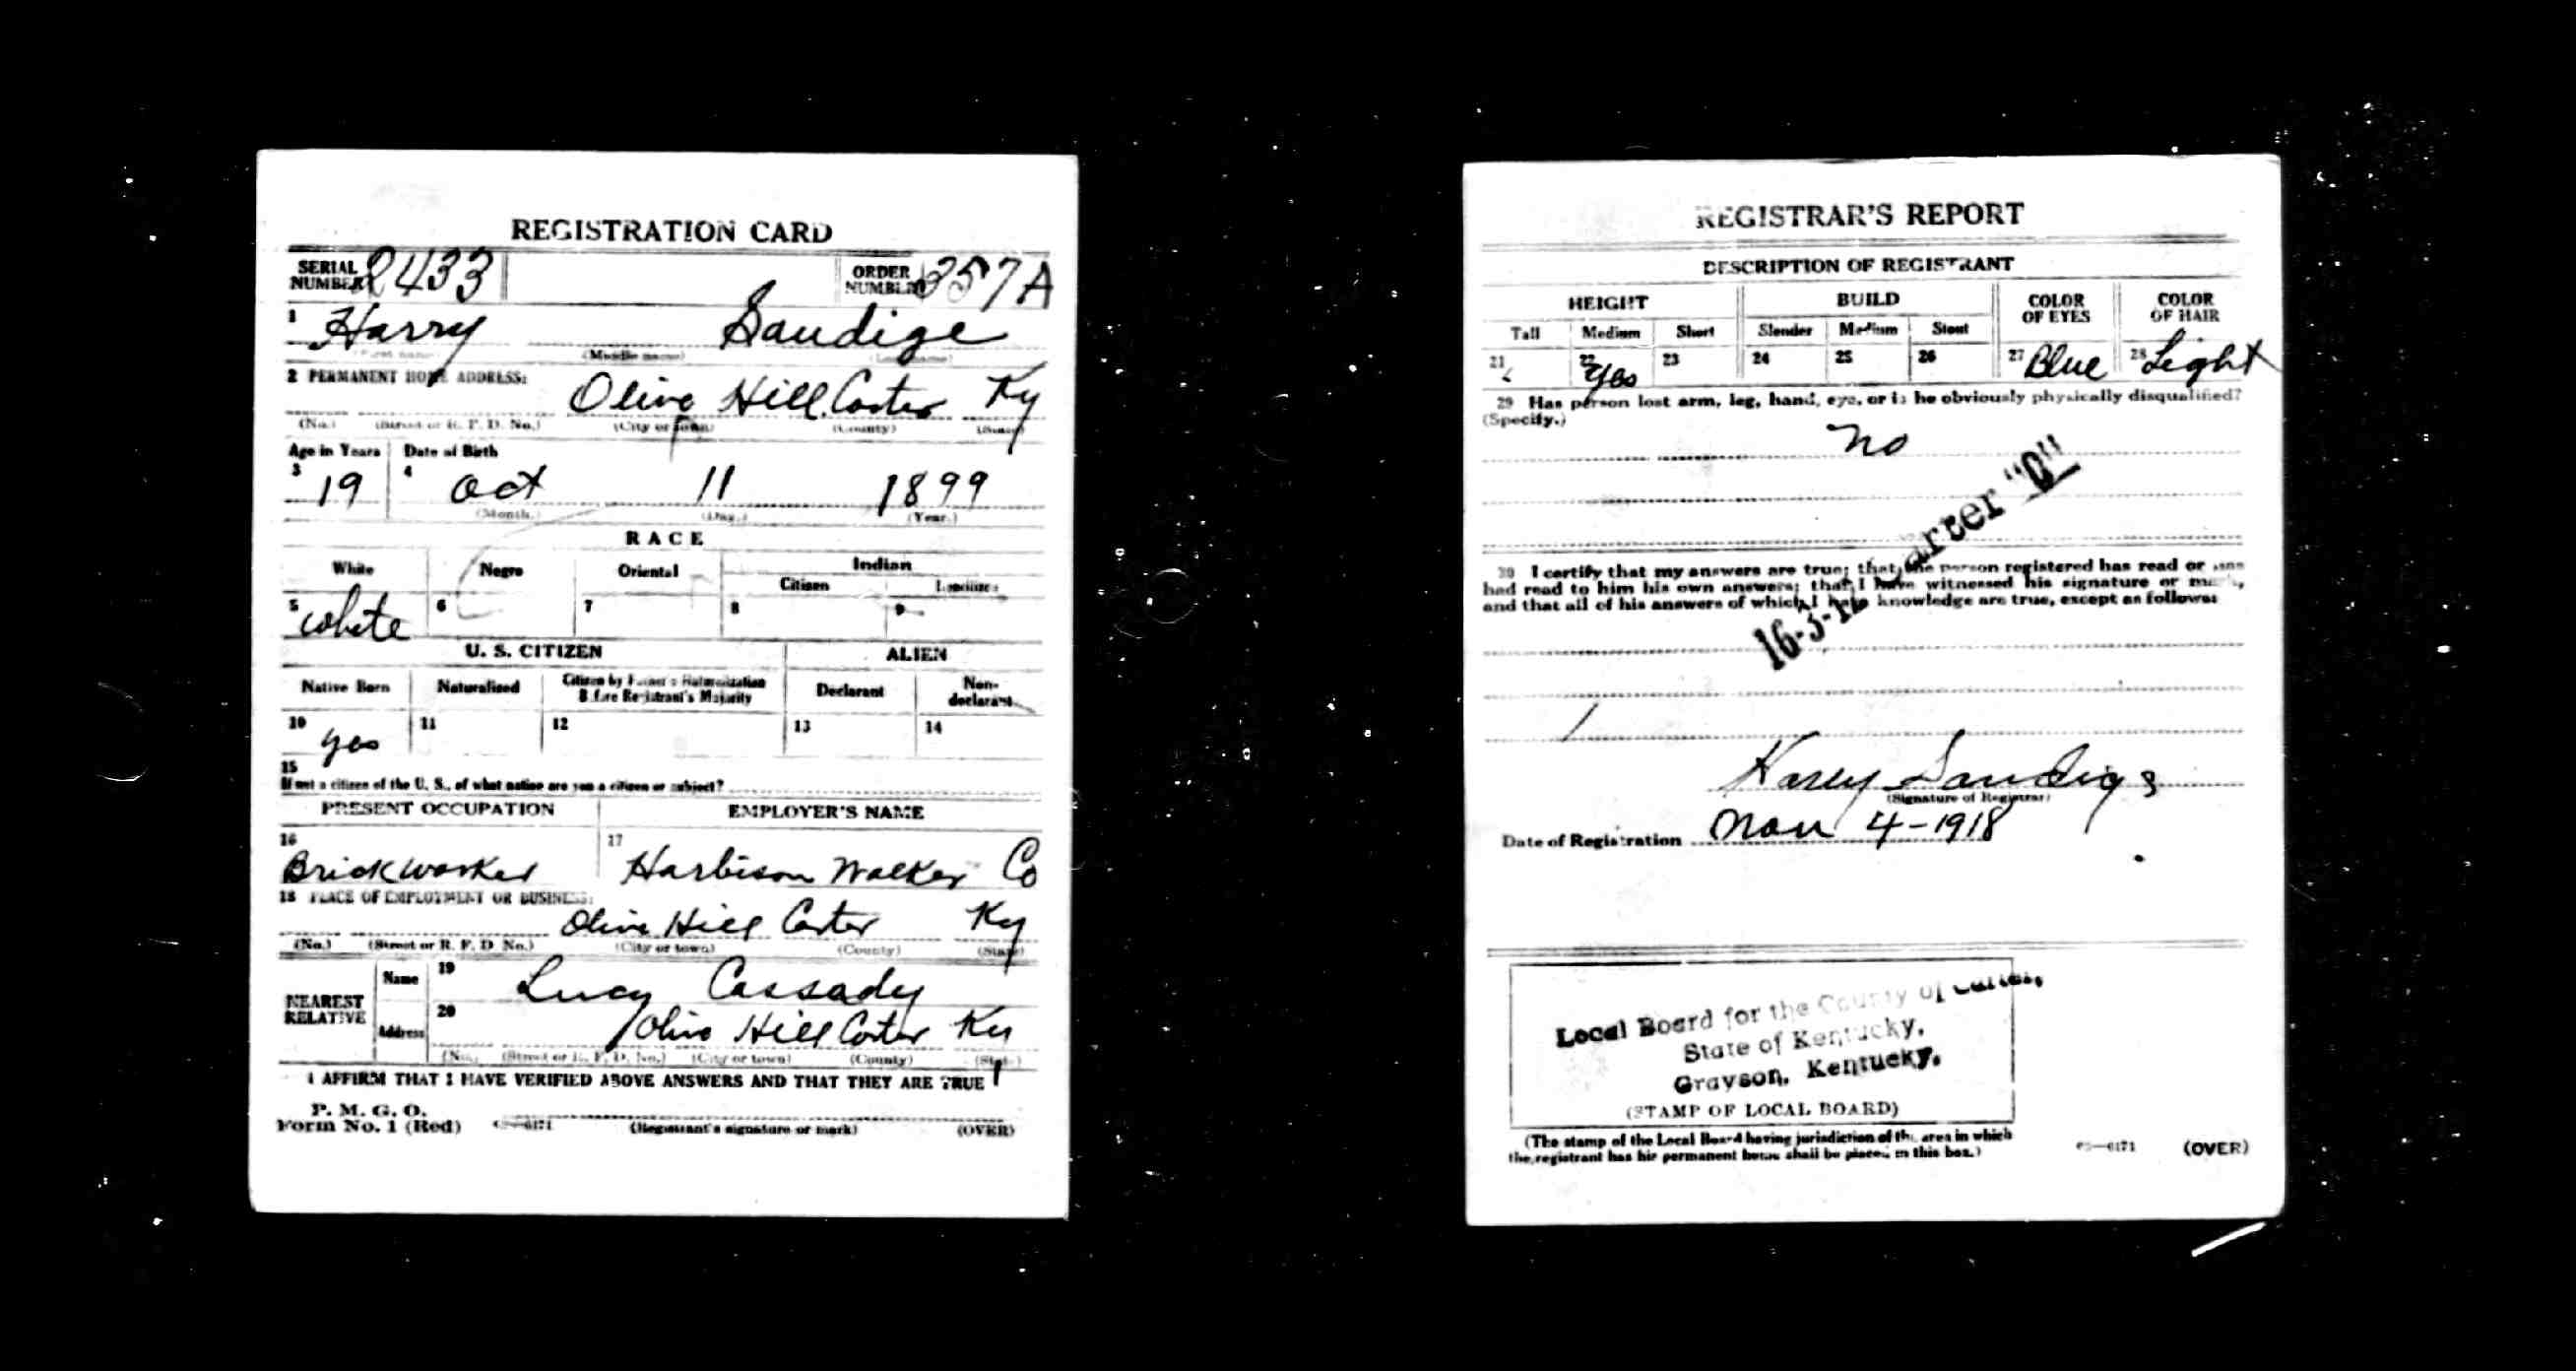 REGISTRATION CARD
SERIAL NUMBER 2433 ORDER NUMBER 357 A
1 Harry Sandige
(First name) (Middle name) (Last name)
2 PERMANENT HOME ADDRESS:
Olive Hill Carter Ky
(No.) (Street or R. F. D. No.) (City or town) (County) (State)
Age in Years Date of Birth
3 19 4 Oct 11 1899
(Month.) (Day.) (Year.)
RACE
White Negro Oriental Indian
Citizen
5 White 6 7 8 9
U. S. CITIZEN ALIEN
Native Born Naturalized Citizen by Father's Naturalization Before Registrant's Majority Declarant Non-declarant
10 yes 11 12 13 14
15
If not a citizen of the U. S., of what nation are you a citizen or subject?
PRESENT OCCUPATION EMPLOYER'S NAME
16 Brick worker 17 Harbison Walker Co
18 PLACE OF EMPLOYMENT OR BUSINESS:
Olive Hill Carter Ky
(No.) (Street or R. F. D. No.) (City or town) (County) (State)
NEAREST RELATIVE Name 19 Lucy Cassady
Address 20 Olive Hill Carter Ky
(No.) (Street or R. F. D. No.) (City or town) (County) (State)
I AFFIRM THAT I HAVE VERIFIED ABOVE ANSWERS AND THAT THEY ARE TRUE
P. M. G. O.
Form No. 1 (Red) (Registrant's signature or mark) (OVER)
REGISTRAR'S REPORT
DESCRIPTION OF REGISTRANT
HEIGHT BUILD COLOR OF EYES COLOR OF HAIR
Tall Medium Short Slender Medium Stout
21 22 Yes 23 24 25 26 27 Blue 28 Light
29 Has person lost arm, leg, hand, eye, or is he obviously physically disqualified?
(Specify.)
No
30 I certify that my answers are true; that the person registered has read or has
had read to him his own answers; that I have witnessed his signature or mark,
and that all of his answers of which I have knowledge are true, except as follows:
Harry Sandige
(Signature of Registrar)
Date of Registration Nov 4-1918
Local Board for the County of Carter,
State of Kentucky,
Grayson, Kentucky.
(STAMP OF LOCAL BOARD)
(The stamp of the Local Board having jurisdiction of the area in which
the registrant has his permanent home shall be placed in this box.)
(OVER)